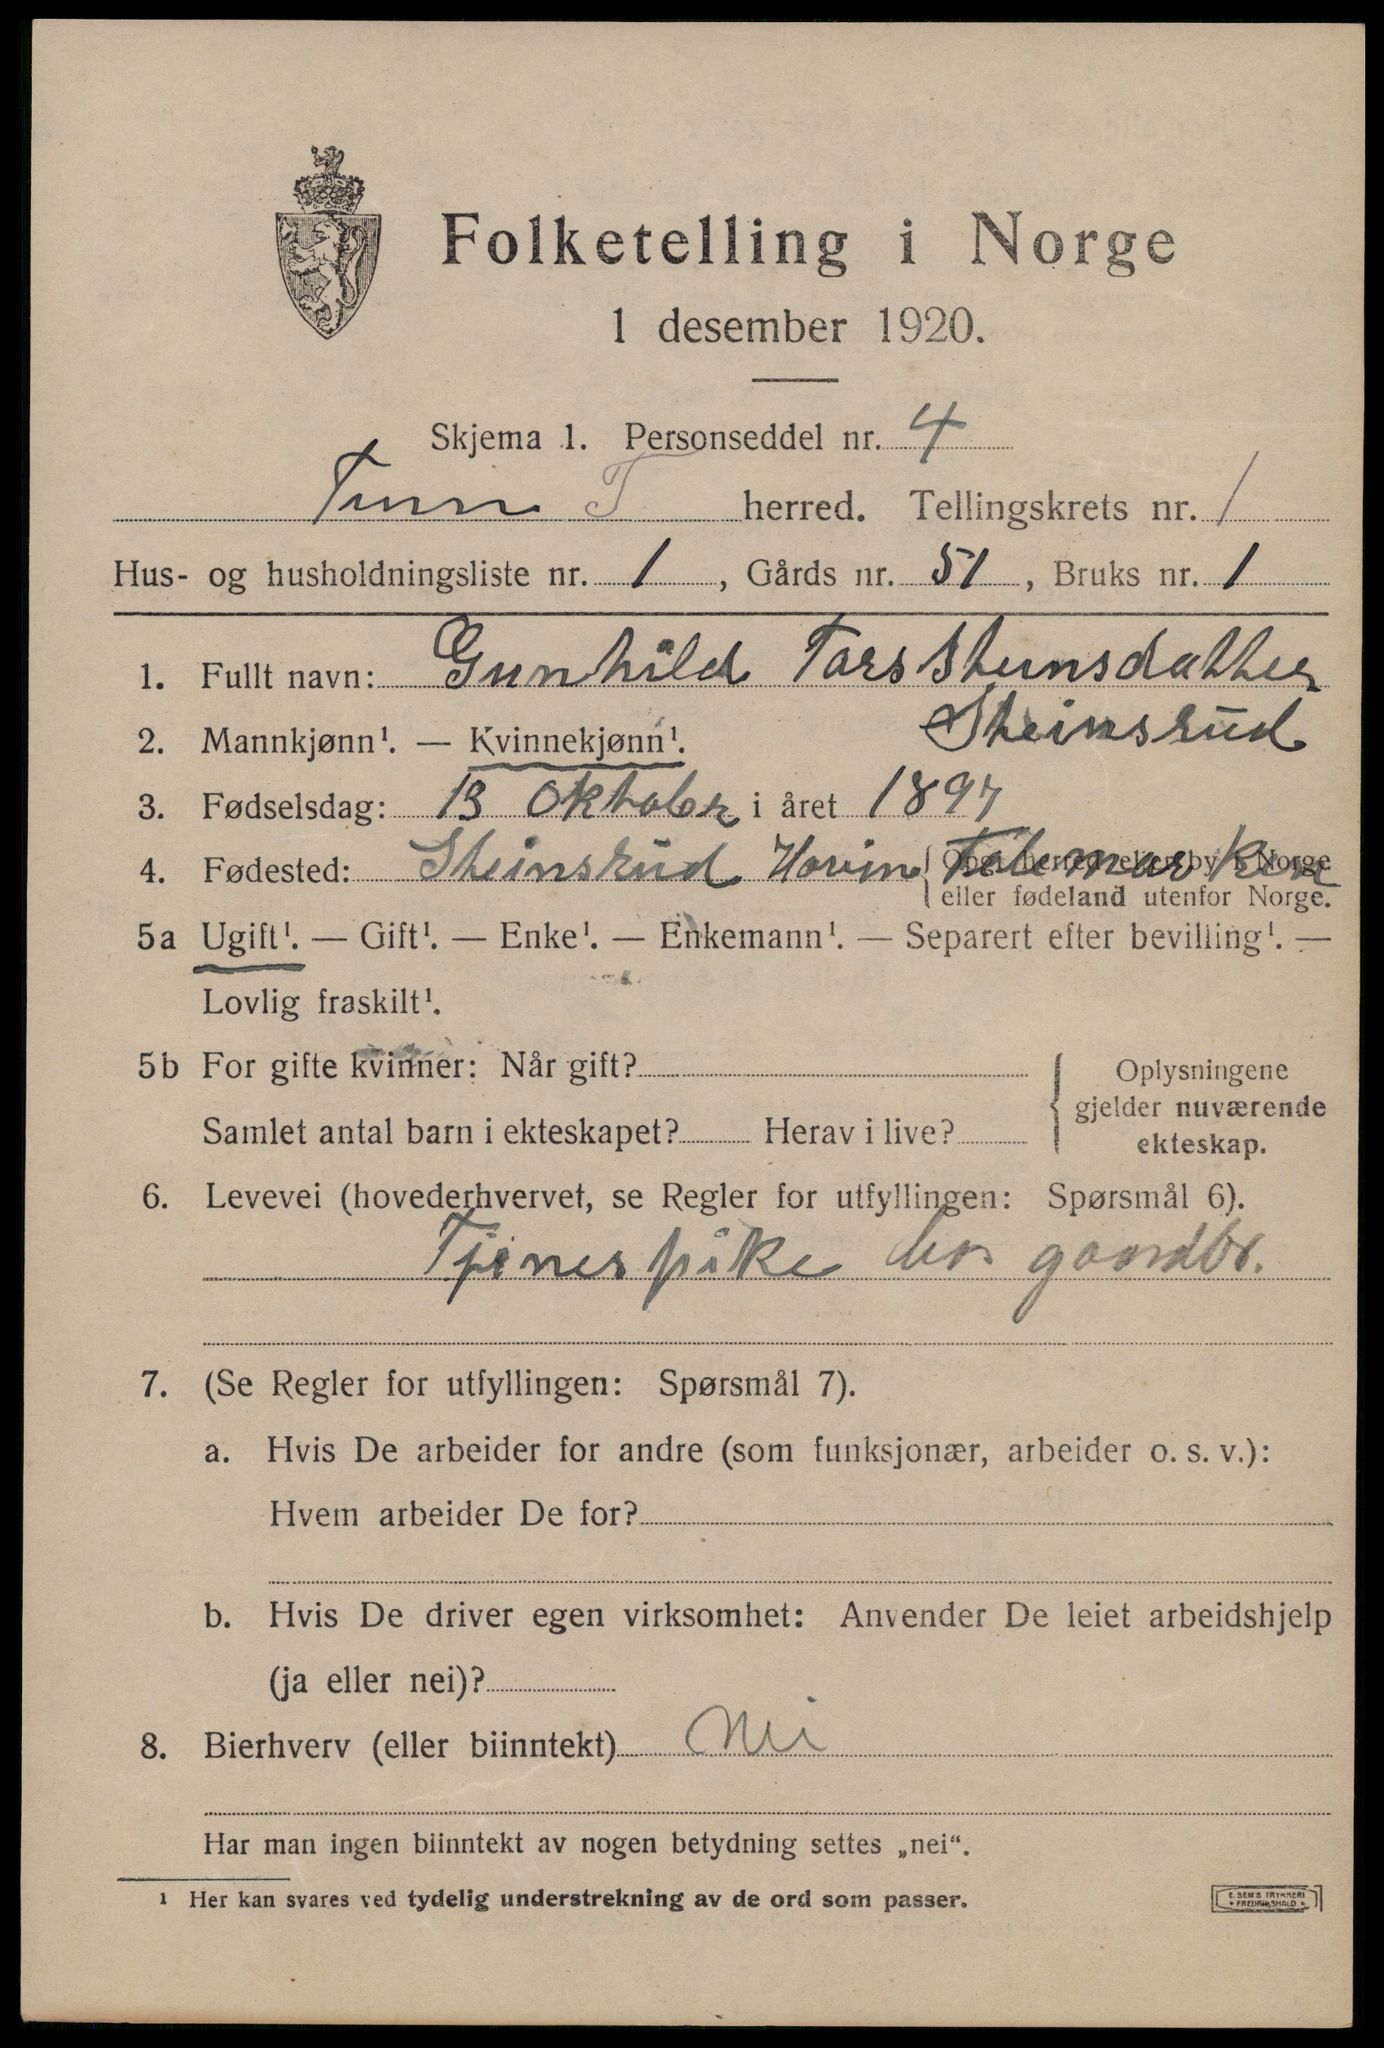 Folketelling i Norge
1 desember 1920.
Skjema 1. Personseddel nr. 4
Tinn T herred. Tellingskrets nr. 1
Hus- og husholdningsliste nr. 1, Gårds nr. 51, Bruks nr. 1
1. Fullt navn: Gunhild Torssteinsdatter
Steinsrud
2. Mannkjønn¹. — Kvinnekjønn¹.
3. Fødselsdag: 13 Oktober i året 1897
4. Fødested: Steinsrud Hovin Telemarken { Opgi herred eller by i Norge
eller fødeland utenfor Norge.
5a Ugift¹. — Gift¹. — Enke¹. — Enkemann¹. — Separert efter bevilling¹. —
Lovlig fraskilt¹.
5b For gifte kvinner: Når gift?
Samlet antal barn i ekteskapet? Herav i live?
{ Oplysningene
gjelder nuværende
ekteskap.
6. Levevei (hovederhvervet, se Regler for utfyllingen: Spørsmål 6).
Tjenespike hos gaardbr.
7. (Se Regler for utfyllingen: Spørsmål 7).
a. Hvis De arbeider for andre (som funksjonær, arbeider o. s. v.):
Hvem arbeider De for?
b. Hvis De driver egen virksomhet: Anvender De leiet arbeidshjelp
(ja eller nei)?
8. Bierhverv (eller biinntekt) Nei
Har man ingen biinntekt av nogen betydning settes „nei“.
¹ Her kan svares ved tydelig understrekning av de ord som passer.
E. SEM'S TRYKKERI
FREDRIKSHALD